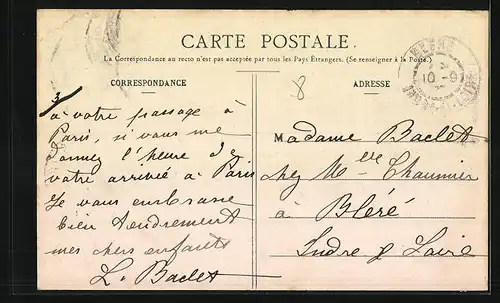 CARTE POSTALE.
La Correspondance au recto n'est pas acceptée par tous les Pays Étrangers. (Se renseigner à la Poste.)
CORRESPONDANCE
3
à votre passage à
Paris, si vous me
donnez l'heure de
votre arrivée à Paris
Je vous embrasse
bien tendrement
mes chers enfants
L. Baclet
8
ADRESSE
Madame Baclet
chez Mlle Chaumier
à Bléré
Indre & Loire